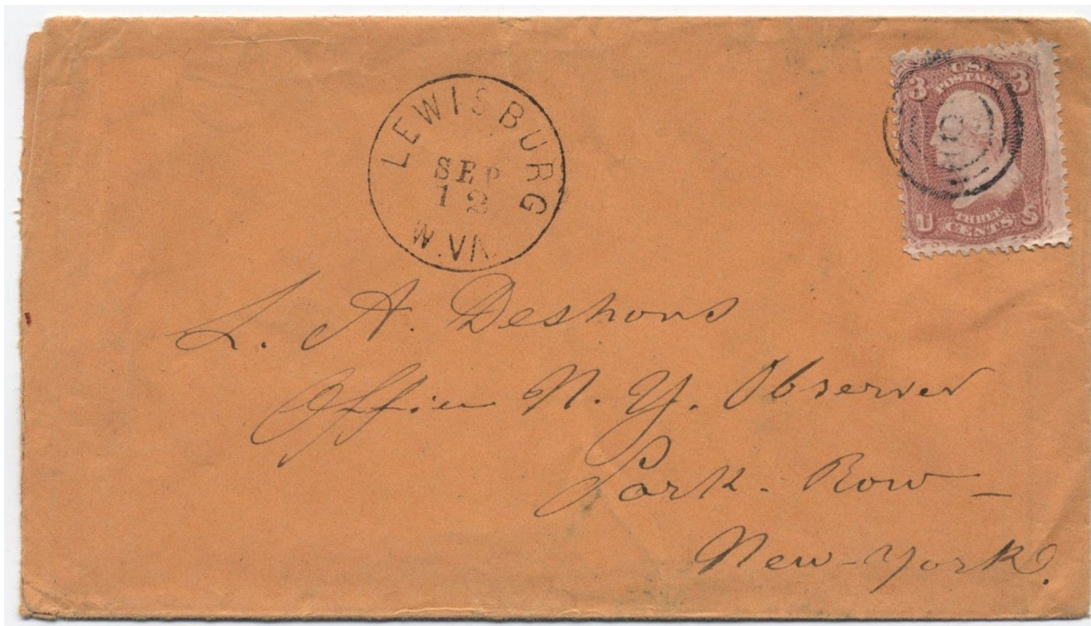 LEWISBURG
SEP
12
W.VA.
3 U.S. 3
POSTAGE
U THREE S
CENTS
L. A. Deshons
Office N. Y. Observer
Park. Row –
New-York.